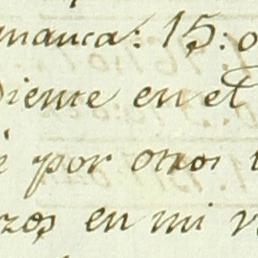 manca: 15. o
diente en el
é por otros
zos en mi v